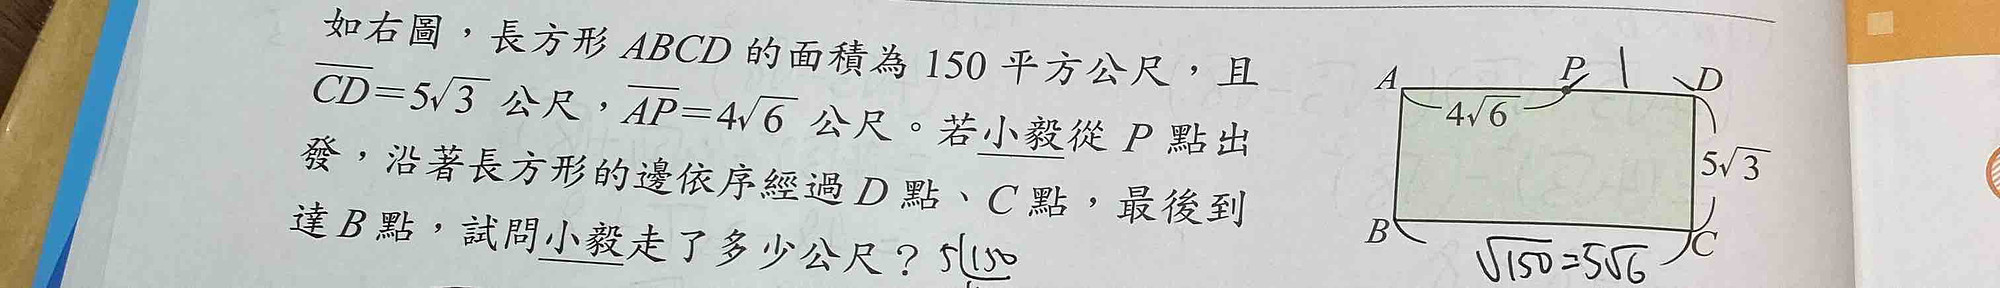 如右圖，長方形 ABCD 的面積為 150 平方公尺，且
CD=5√3 公尺，AP=4√6 公尺。若小毅從 P 點出
發，沿著長方形的邊依序經過 D 點、C 點，最後到
達 B 點，試問小毅走了多少公尺？ 5 150
A P 1 D
4√6
5√3
B C
√150=5√6